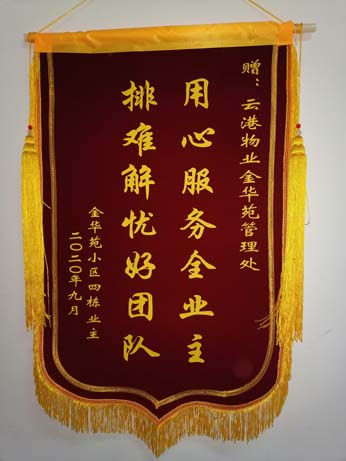 赠：云港物业金华苑管理处
用心服务全业主
排难解忧好团队
金华苑小区四栋业主
二二〇年九月